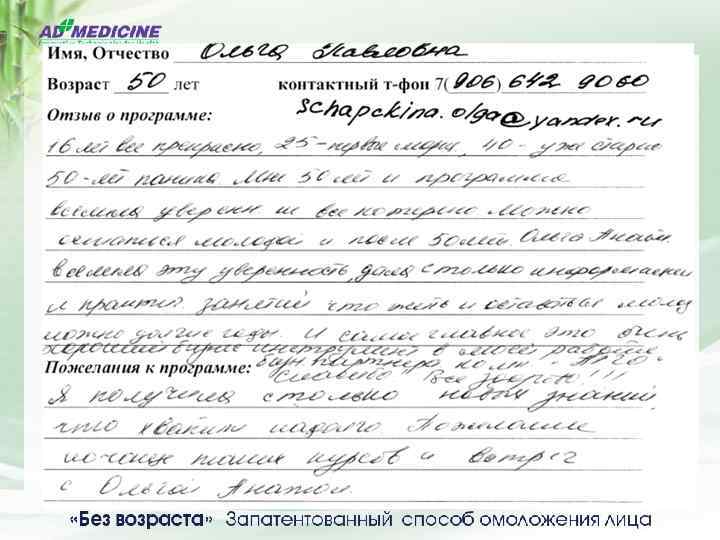 AD MEDICINE
Имя, Отчество Ольга Павловна
Возраст 50 лет контактный т-фон 7(906) 642 9060
Отзыв о программе: Schapckina.olga@yandex.ru
16 лет все прекрасно, 25 - первые морщ, 40 - уже старю
50 - лет паника. Мне 50 лет и программа
вселила уверен не все потеряно можно
оставаться молодой и после 50 лет. Ольга Анат.
вселила эту уверенность, дала столько информации
и практич. занятий что жить и оставаться молод
можно долгие годы. И самое главное это очень
хороший инструмент в моей работе
Пожелания к программе: партнера комп.
Спасибо Все здорово!!!
Я получила столько новых знаний,
что хватит надолго Пожелание
почаще таких курсов и встреч
с Ольгой Анатол.
«Без возраста» Запатентованный способ омоложения лица